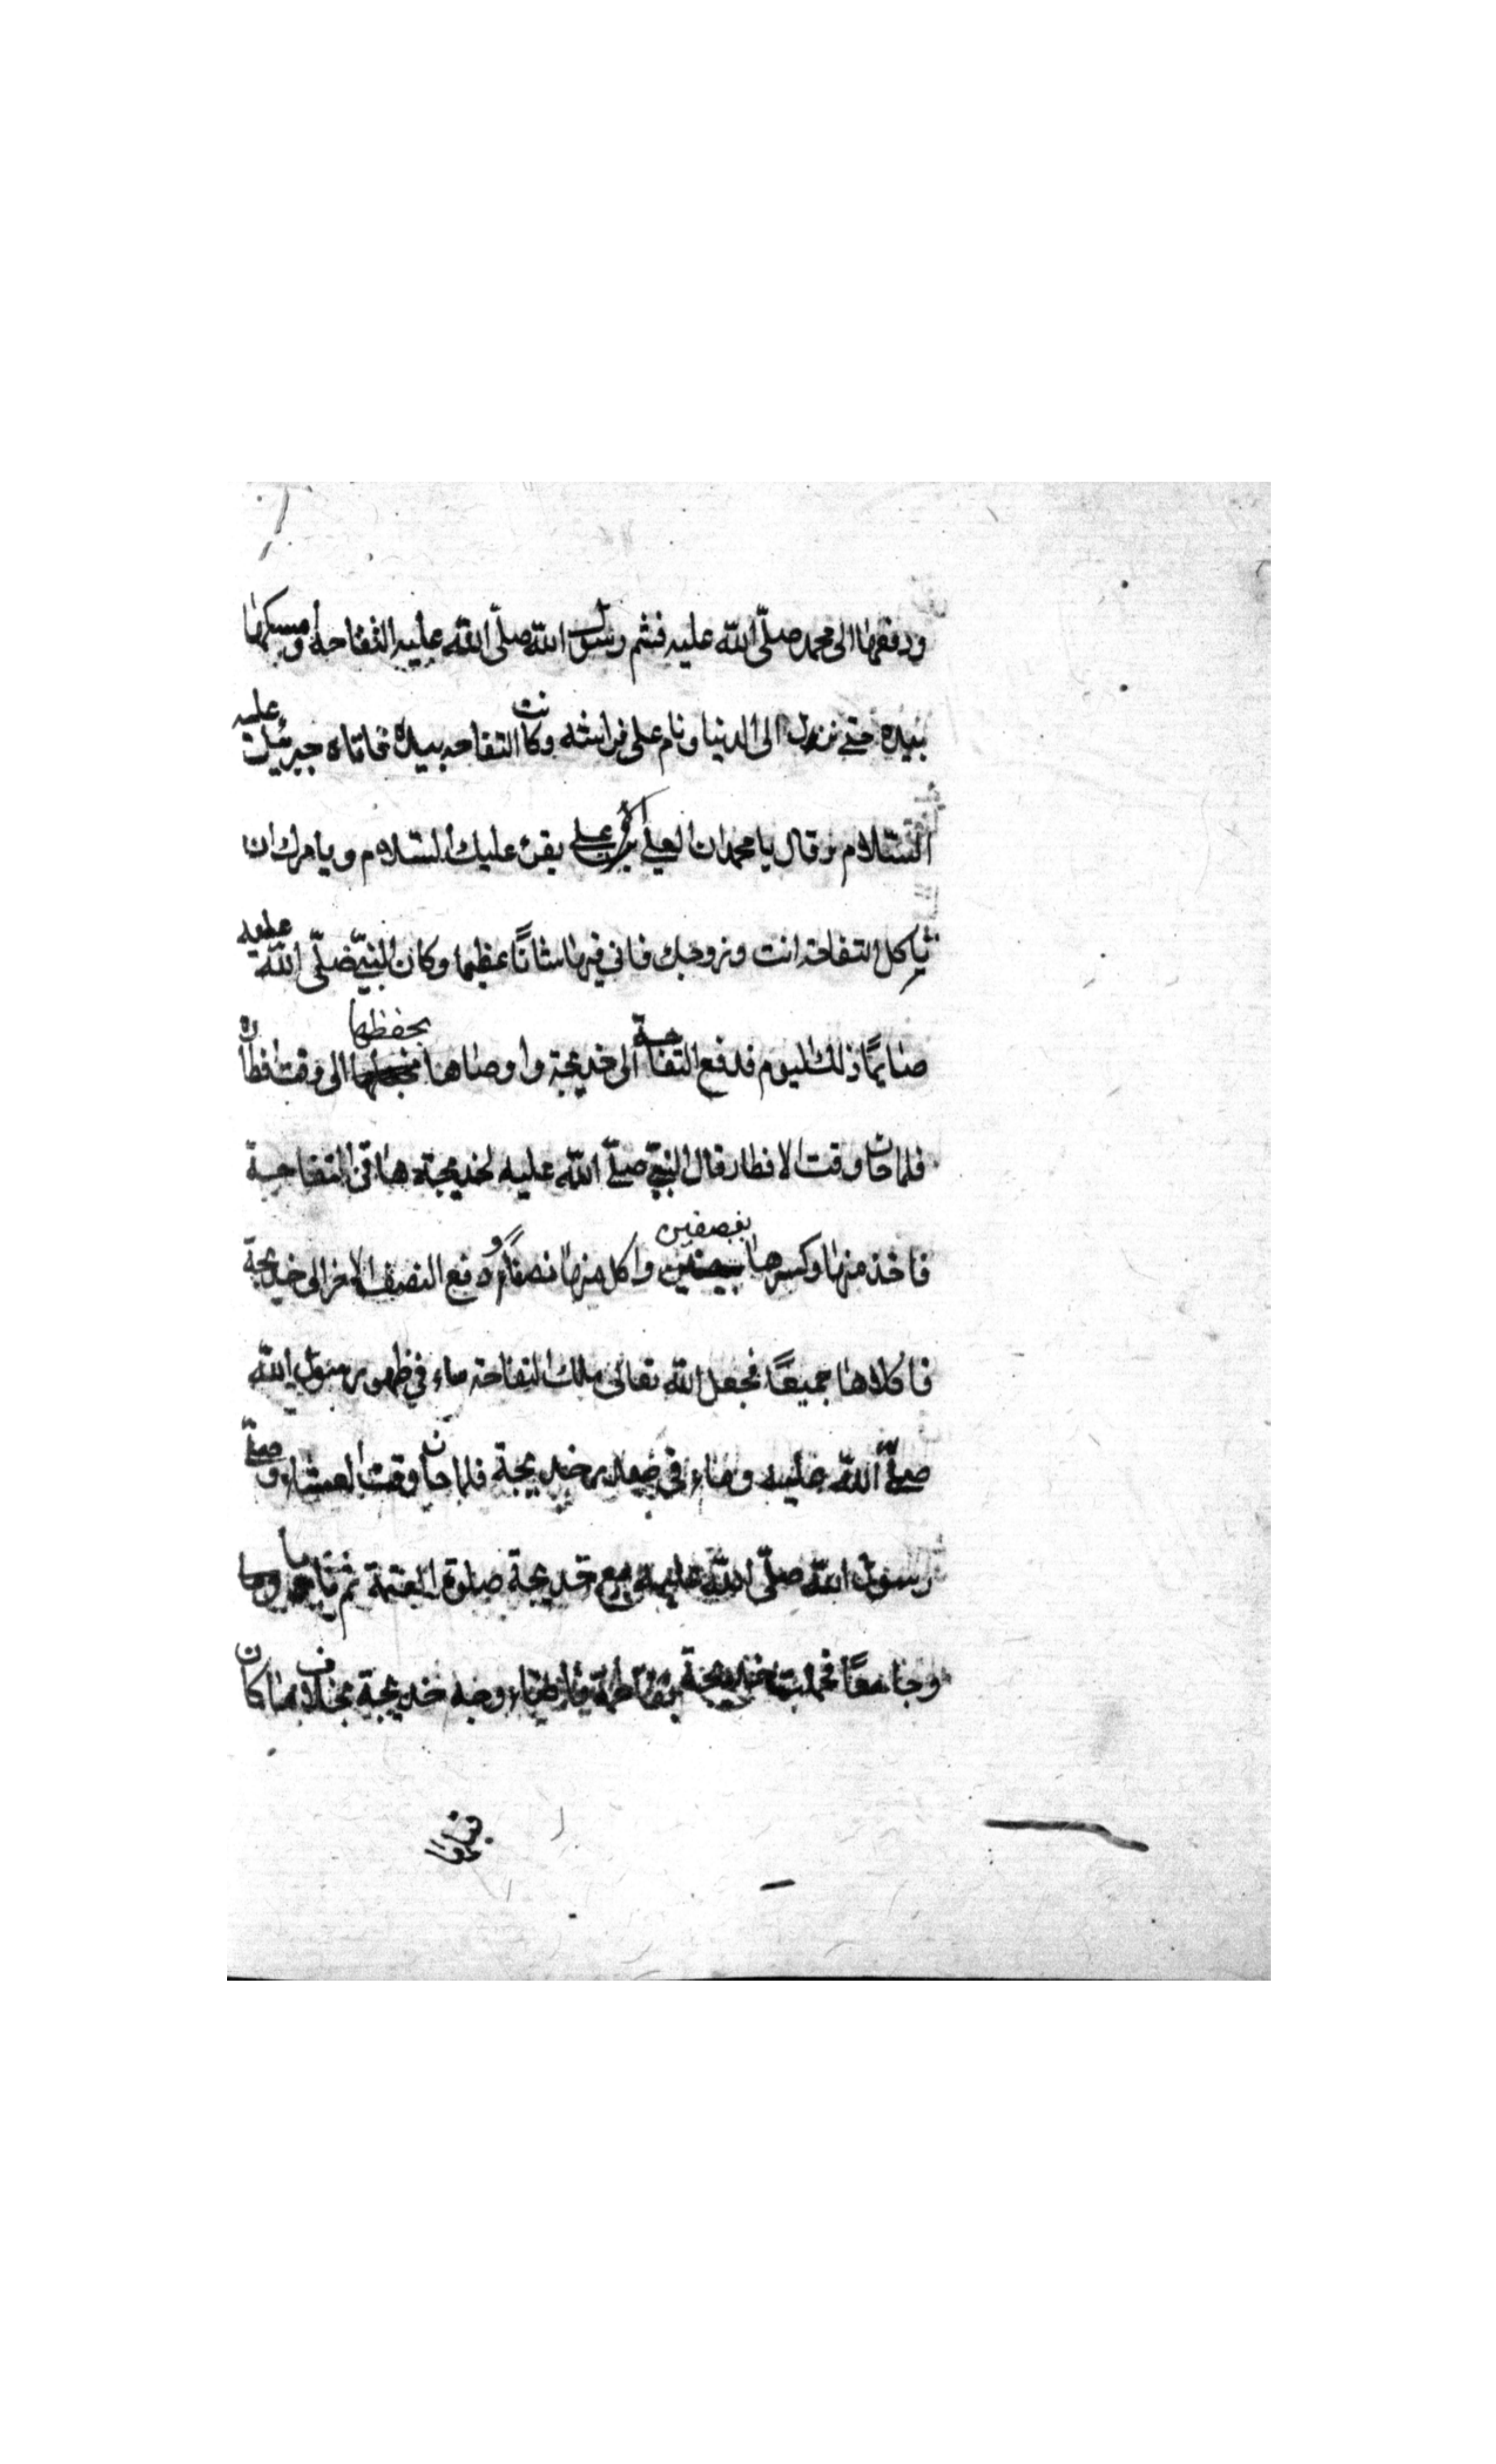 ودفعها الى محمد صلّى الله عليه فشم رسول الله صلّى الله عليه التفاحة وامسكها
بيده حتى نزل الى الدنيا ونام على فراشه وكانت التفاحه بيده فاتاه جبرئيل عليه
السّلام وقال يا محمد ان العلي الاعلى يقرئ عليك السّلام ويامرك ان
تاكل التفاحة انت وزوجك فان فيها شانًا عظيما وكان النبيّ صلّى الله عليه
صايمًا ذلك اليوم فدفع التفاحة الى خديجة واوصاها بحفظها الى وقت افطاره
فلما حان وقت الافطار قال النبيّ صلّى الله عليه لخديجة هاتي التفاحة
فاخذ منها وكسرها بنصفين واكل منها نصفًا ودفع النصف الاخر الى خديجة
فاكلاها جميعًا فجعل الله تعالى ملك التفاحة ماء في ظهور رسول الله
صلّى الله عليه وماء في خديجة فلما حان وقت العشاء وصلّى
رسول الله صلّى الله عليه مع خديجة صلوة العتمة ثم ناما
وجامعًا فحملت خديجة بفاطمة فاضاء وجه خديجة بخلاف ما كان